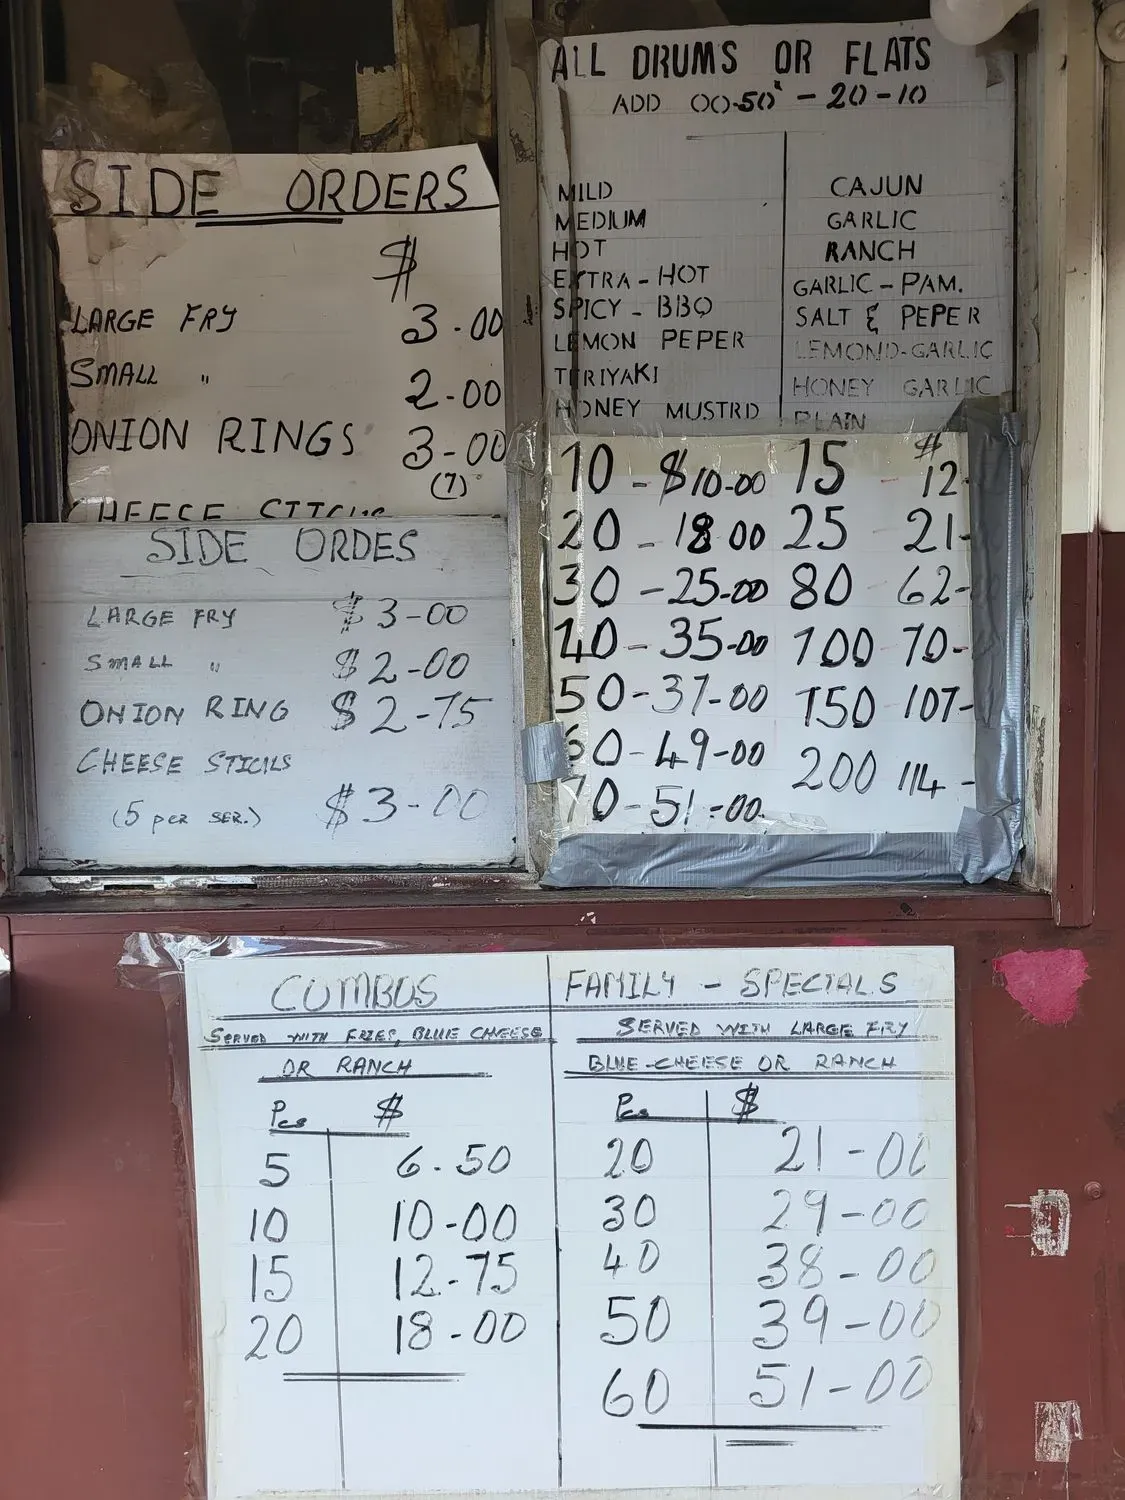 SIDE ORDERS
$
LARGE FRY 3-00
SMALL " 2-00
ONION RINGS 3-00
(7)
CHEESE STICKS
SIDE ORDES
LARGE FRY $3-00
SMALL " $2-00
ONION RING $2-75
CHEESE STICKS
(5 PER SER.) $3-00
ALL DRUMS OR FLATS
ADD 00-50 - 20-10
MILD CAJUN
MEDIUM GARLIC
HOT RANCH
EXTRA-HOT GARLIC-PAM.
SPICY-BBQ SALT & PEPER
LEMON PEPER LEMOND-GARLIC
TERIYAKI HONEY GARLIC
HONEY MUSTRD PLAIN
10-$10-00 15 $12-
20-18 00 25 21-
30-25-00 80 62-
40-35-00 100 70-
50-37-00 150 107-
60-49-00 200 114-
70-51-00
COMBOS
SERVED WITH FRIES, BLUE CHEESE
OR RANCH
Pcs $
5 6.50
10 10-00
15 12-75
20 18-00
FAMILY - SPECIALS
SERVED WITH LARGE FRY
BLUE-CHEESE OR RANCH
Pcs $
20 21-00
30 29-00
40 38-00
50 39-00
60 51-00